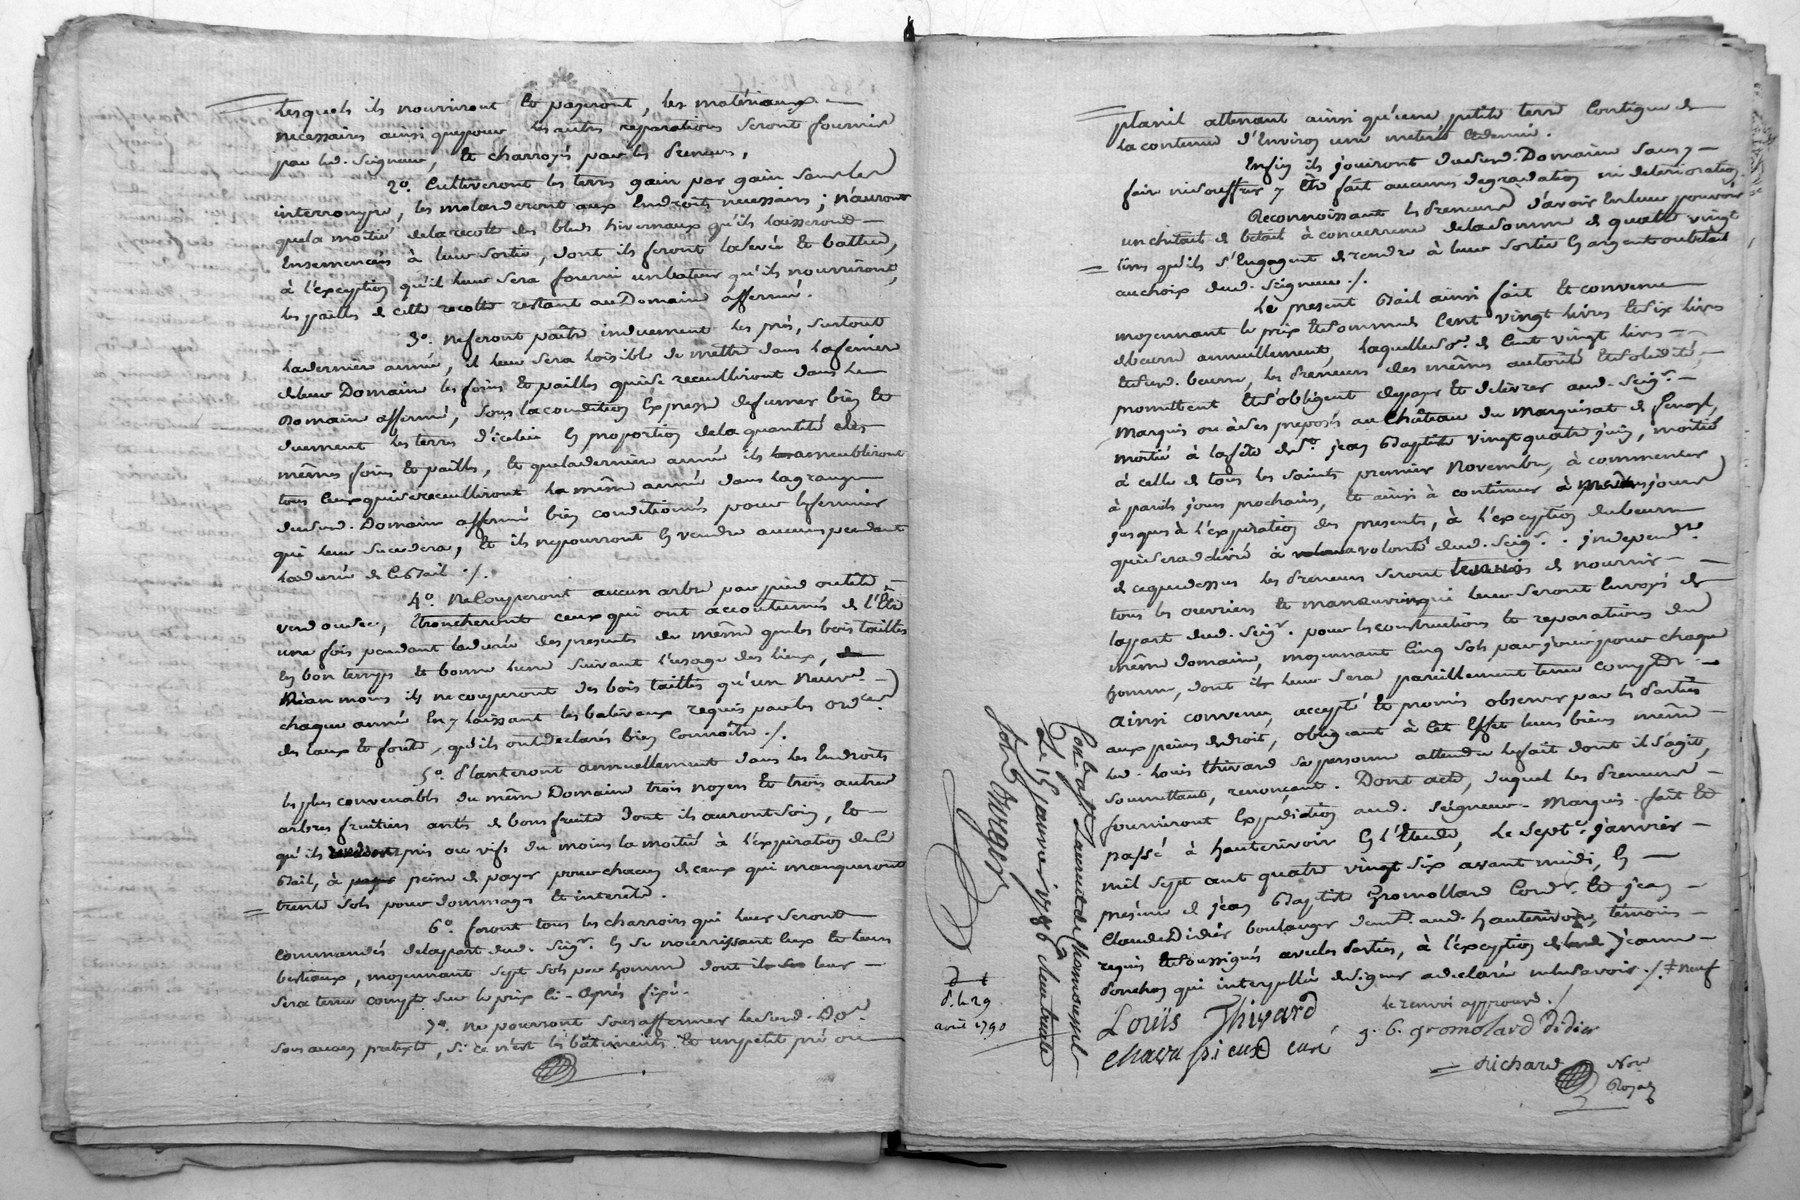 lesquels ils nourriront et payeront, les matériaux
necessaires ainsi que pour les autres reparations seront fournis
par led. Seigneur, et charroyés par les Preneurs,
2°. Cultiveront les terres gain par gain sans les
interrompre, les molarderont aux Endroits necessaires; n'auront
que la moitié de la recolte des bleds hivernaux qu'ils laisseront
Ensemencés à leur sortie, dont ils feront la levée et battue,
à l'exception qu'il leur sera fourni un bateur qu'ils nourriront,
les pailles de cette recolte restant au Domaine affermé.
3°. Ne feront paître induement les prés, surtout
la derniere année, il leur sera loisible de mettre dans la feniere
de leur Domaine les foins et pailles qui se recueilliront dans le
Domaine affermé, sous la condition Expresse de fumer bien et
duement les terres d'icelui En proportion de la quantité des
mêmes foins et pailles, et que la derniere année ils ameubliront
tous ceux qui se recueilliront la même année dans la grange
dudsusd. Domaine affermé bien conditionnés pour le fermier
qui leur succedera, et ils ne pourront En vendre aucuns pendant
la durée de ce Bail ./.
4°. Ne Couperont aucun arbre par pied ou tête
verd ou sec, Etroncheront ceux qui ont accoutumés de l'Etre
une fois pendant la durée des presents de même que les bois taillés
En bon temps et bonne lune suivant l'usage des lieux,
Néanmoins ils ne couperont des bois taillés qu'un Neuvième
chaque année En y laissant les baliveaux requis par les ord.ces
des Eaux et forêts, qu'ils ont Declarés bien Connoître ./.
5°. Planteront annuellement dans les Endroits
les plus convenables du même Domaine trois noyers et trois autres
arbres fruitiers antés de bons fruits dont ils auront Soin, et
qu'ils rendront pris ou vifs du moins la moitié à l'expiration de ce
Bail, à peine de payer pour chacun de ceux qui manqueront
trente sols pour dommages et interêts.
6°. feront tous les charrois qui leur seront
commandés de la part dud. Seigr. En se nourrissant Eux et leurs
bestiaux, moyennant sept sols par homme dont il leur
sera tenu compte sur le prix Ci-Après fixé.
7°. Ne pourront sousaffermer le susd. Do.e
sous aucun pretexte, si ce n'est les bâtiments et un petit pré ou
planil attenant ainsi qu'une petite terre Contigue de
la contenue d'Environ une meterée et demie.
Enfin ils jouiront dudsusd. Domaine sans y
faire ni souffrir y Etre fait aucunes degradations ni deteriorations.
Reconnoissant les Preneurs d'avoir En leur pouvoir
un chetail de betail à concurrence de la somme de quatre vingt
livres qu'ils s'Engagent de rendre à leur sortie En argent ou betail
au choix dud. Seigneur ./.
Le present Bail ainsi fait et convenu
moyennant le prix et somme de Cent vingt livres et six livres
de beurre annuellement, laquelle se. de Cent vingt livres
et susd. beurre, les Preneurs des mêmes autorité et solidité,
promettent et s'obligent de payer et delivrer aud. Seigr.
Marquis ou à ses preposés au Château du Marquisat de fenoyl,
moitié à la fête de St. jean Baptiste vingt quatre juin, moitié
à celle de tous les Saints premier Novembre, à commencer
à pareils jours prochains, et ainsi à continuer à mêmes jours
jusques à l'expiration des presents, à l'exception du beurre
qui sera delivré à volonté dud. Seigr. . jndependt.
de ce que dessus les Preneurs seront tenus de nourrir
tous les ouvriers et manœuvres qui leur seront Envoyés de
la part dud. Seigr. pour les constructions et reparations du
même domaine, moyennant Cinq sols par jour pour chaque
homme, dont ils leur sera pareillement tenu compte
ainsi convenu, accepté et promis observer par les Parties
aux peines de droit, obligeant à Cet Effet leurs biens même
led. Louis thivard sa personne attendu le fait dont il s'agit,
soumettant, renonçant. Dont acte, duquel les Preneurs
fourniront Expedition aud. Seigneur Marquis fait et
passé à hauterivoir En l'Etude, le sept.e janvier
mil sept cent quatre vingt six avant midi, En
présence de jean Baptiste Gromollard Cordr. et jean
Claude Didier boulanger demt. aud. hauterivoir, témoins
requis et soussignés avec les Parties, à l'exception de lad. jeanne
Ponchon qui interpellée de signer a declaré ne le savoir ./. ≠ neuf
le renvoi approuvé ./
Louis Thivard
J. B. gromolard Didier
curé
Richard Nore
Royal
Conlé à St Laurent de Chamousset
Le 15 janvier 1786
D. le 29
avril 1790